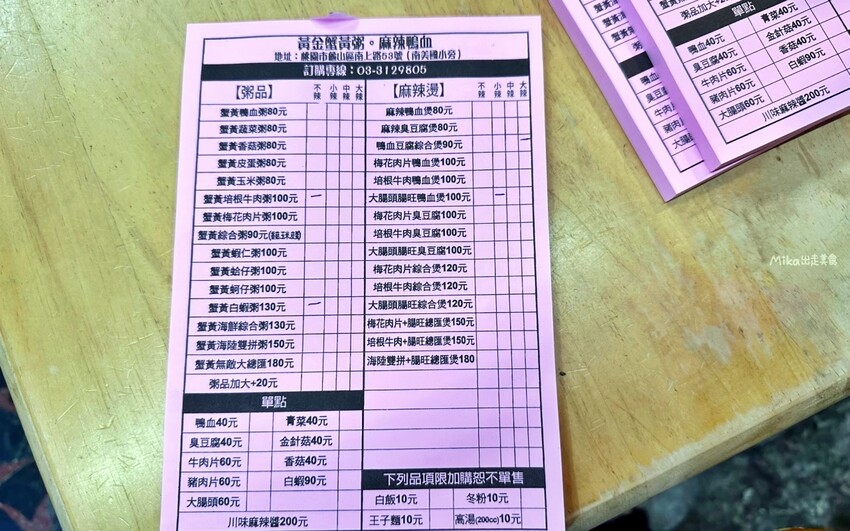 黃金蟹黃粥。麻辣鴨血
地址:桃園市龜山區南上路53號(南美國小旁)
訂購專線:03-3129805
【粥品】 不辣 小辣 中辣 大辣
蟹黃鴨血粥80元
蟹黃蔬菜粥80元
蟹黃香菇粥80元
蟹黃皮蛋粥80元
蟹黃玉米粥80元
蟹黃培根牛肉粥100元
蟹黃梅花肉片粥100元
蟹黃綜合粥90元
蟹黃蝦仁粥100元
蟹黃蛤仔粥100元
蟹黃蚵仔粥100元
蟹黃白蝦粥130元
蟹黃海鮮綜合粥130元
蟹黃海陸雙拼粥150元
蟹黃無敵大總匯粥180元
粥品加大+20元
【麻辣燙】 不辣 小辣 中辣 大辣
麻辣鴨血煲80元
麻辣臭豆腐煲80元
鴨血豆腐綜合煲90元
梅花肉片鴨血煲100元
培根牛肉鴨血煲100元
大腸頭腸旺鴨血煲100元
梅花肉片臭豆腐100元
培根牛肉臭豆腐100元
大腸頭腸旺臭豆腐100元
梅花肉片綜合煲120元
培根牛肉綜合煲120元
大腸頭腸旺綜合煲120元
梅花肉片+腸旺總匯煲150元
培根牛肉+腸旺總匯煲150元
海陸雙拼+腸旺總匯煲180
單點
鴨血40元 青菜40元
臭豆腐40元 金針菇40元
牛肉片60元 香菇40元
豬肉片60元 白蝦90元
大腸頭60元
川味麻辣醬200元
下列品項限加購恕不單售
白飯10元 冬粉10元
王子麵10元 高湯(200cc)10元
粥品加大+2
單點
鴨血40元 青菜40元
臭豆腐40元 金針菇40元
牛肉片60元 香菇40元
豬肉片60元 白蝦90元
大腸頭60元
川味麻辣醬200元
鴨血
臭豆
牛肉片
豬肉片
大腸頭
Mika出走美食